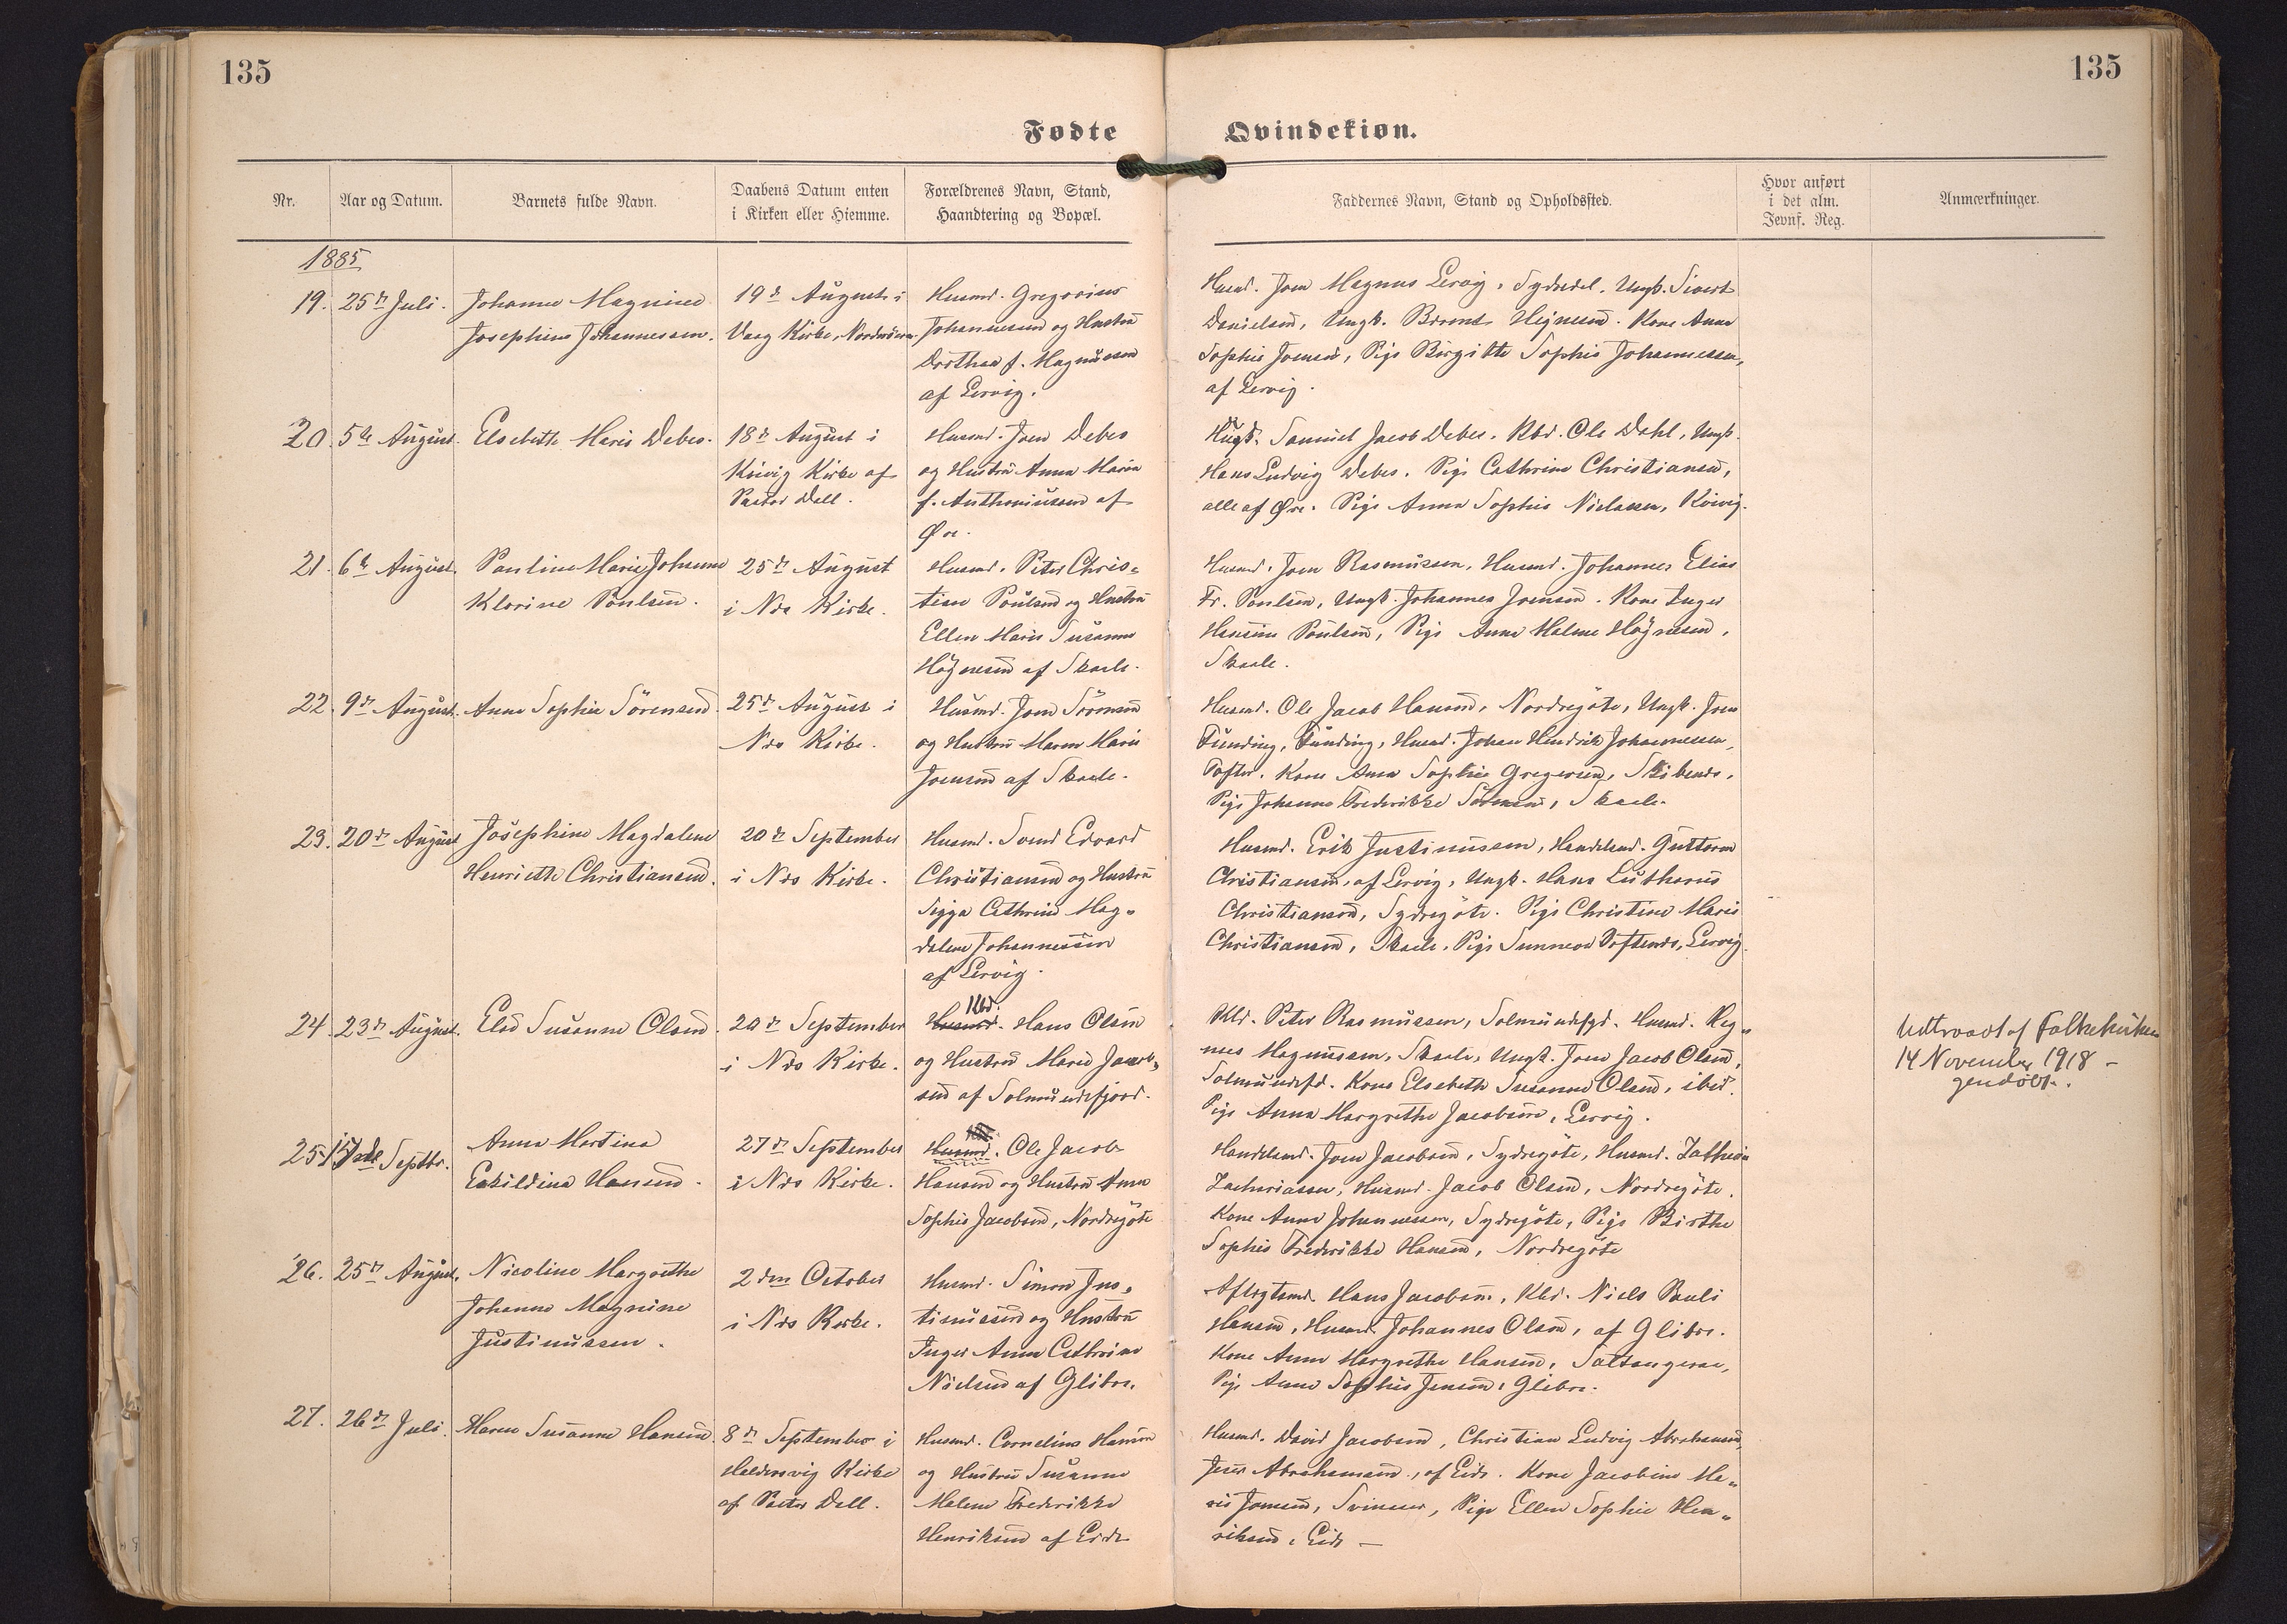 135
135
Fødte
Qvindekiøn.
Nr.
Aar og Datum.
Barnets fulde Navn.
Daabens Datum enten
i Kirken eller Hiemme.
Forældrenes Navn, Stand,
Haandtering og Bopæl.
Faddernes Navn, Stand og Opholdssted.
Hvor anført
i det alm.
Jevnf. Reg.
Anmærkninger.
1885
19.
25de Juli.
Johanne Magnine
Josephine Johannessen.
19de August i
Vaag Kirke, Norderöerne
Husmd. Gregorius
Johannessen og Hustru
Dorthea f. Magnussen
af Lervig.
Husmd. Joen Magnus Lervig, Sydredel. Ungk. Sivert
Danielsen, Ungk. Heinesen. Kone Anna
Sophie Joensen, Pige Birgitte Sophie Johannessen,
af Lervig.
20.
5te August.
Elsebeth Marie Debes.
18de August i
Kirke af
Pastor Dall.
Husmd. Joen Debes
og Hustru Anna Maria
f. Anthoniussen af
Öre.
Ungk. Samuel Jacob Debes. Kbd. Ole Dahl, Ungk.
Hans Ludvig Debes. Pige Cathrine Christiansen,
alle af Öre. Pige Anna Sophie Nielssen,
21.
6te August.
Pauline Marie Johanne
Klarine Poulsen.
25de August
i Nes Kirke.
Husmd. Peter Chris=
tian Poulsen og Hustru
Ellen Marie Susanne
Högnesen af Skaale.
Husmd. Joen Rasmussen, Husmd. Johannes Elias
Fr. Poulsen, Ungk. Johannes Joensen. Kone Inger
Hansine Poulsen, Pige Anne Malene Högnesen,
Skaale.
22.
9de August.
Anne Sophie Sörensen.
25de August i
Nes Kirke.
Husmd. Joen Sörensen
og Hustru Maren Marie
Joensen af Skaale.
Husmd. Ole Jacob Hansen, Nordregöte, Ungk. Joen
Funding, Funding, Husmd. Johan Hendrik Johannessen,
Toften. Kone Anna Sophie Gregersen,
Pige Johanne Frederikke Sörensen, Skaale.
23.
20de August
Josephine Magdalene
Henriette Christiansen.
20de September
i Nes Kirke.
Husmd. Svend Edvard
Christiansen og Hustru
Sigga Cathrine Mag=
dalene Johannessen
af Lervig.
Husmd. Erik Justinussen, Handelsmd. Guttorm
Christiansen, af Lervig, Ungk. Hans Lutherus
Christiansen, Sydregöte. Pige Christine Marie
Christiansen, Skaale, Pige Sunneva Lervig.
24.
23de August.
Else Susanne Olsen.
20de September
i Nes Kirke.
Kbd.
Husmd. Hans Olsen
og Hustru Maren Jacob=
sen af Solmundefjord.
Kbd. Peter Rasmussen, Solmundefjd. Husmd. Mag=
nus Magnussen, Skaale, Ungk. Joen Jacob Olsen,
Solmundefd. Kone Elsebeth Susanne Olsen, ibid.
Pige Anna Margrethe Jacobsen, Lervig.
Udtraadt af Folkekirken
14 November 1918 –
gendöbt.
25.
Septbr.
Anna Martina
Eskildina Hansen.
27de September
i Nes Kirke.
Husmd. Ole Jacob
Hansen og Hustru Anna
Sophie Jacobsen, Nordregöte
Handelsmd. Joen Jacobsen, Sydregöte, Husmd.
Zachariassen, Husmd. Jacob Olsen, Nordregöte.
Kone Anne Johannessen, Sydregöte, Pige Birthe
Sophie Frederikke Hansen, Nordregöte
26.
25de August.
Nicoline Margrethe
Johanne Magnine
Justinussen.
2den October
i Nes Kirke.
Husmd. Simon Jus=
tinussen og Hustru
Inger Anna Cathrine
Nielsen af Glibre.
Aftægtsmd. Hans Jacobsen, Kbd. Niels Pauli
Hansen, Husmd. Johannes Olsen, af Glibre.
Kone Anne Margrethe Hansen, Saltangeraa,
Pige Anne Sophie Jensen, Glibre.
27.
26de Juli.
Maren Susanne Hansen.
8de September i
Haldersvig Kirke
af Pastor Dall.
Husmd. Cornelius Hansen
og Hustru Susanne
Malene Frederikke
Henriksen af Eide
Husmd. David Jacobsen, Christian Ludvig Abrahamsen,
Jens Abrahamsen, af Eide. Kone Jacobine Ma=
rie Joensen, Svinaaer, Pige Ellen Sophie Hen=
riksen, Eide –